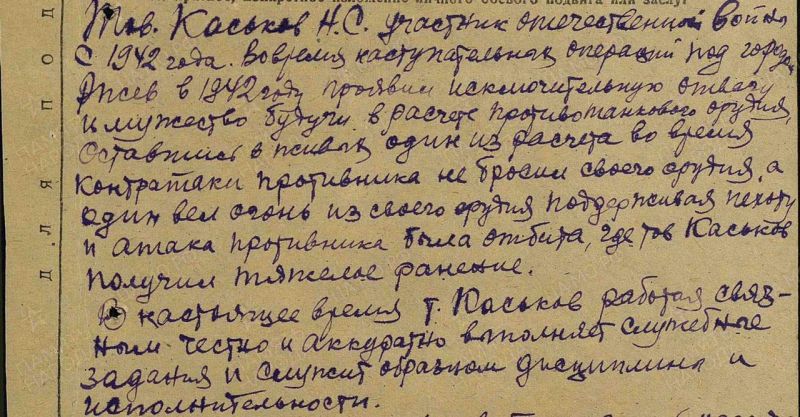 Тов. Каськов Н.С. участник отечественной войны
с 1942 года. Вовремя наступательных операций под городом
Ржев в 1942 году проявил исключительную отвагу
и мужество будучи в расчете противотанкового орудия,
оставшись в живых один из расчета во время
контратаки противника не бросил своего орудия, а
один вел огонь из своего орудия поддерживая пехоту
и атака противника была отбита, где тов Каськов
получил тяжелое ранение.
В настоящее время т. Каськов работая связ-
ным честно и аккуратно выполняет служебные
задания и служит образцом дисциплины и
исполнительности.
ДЛЯ ПОД